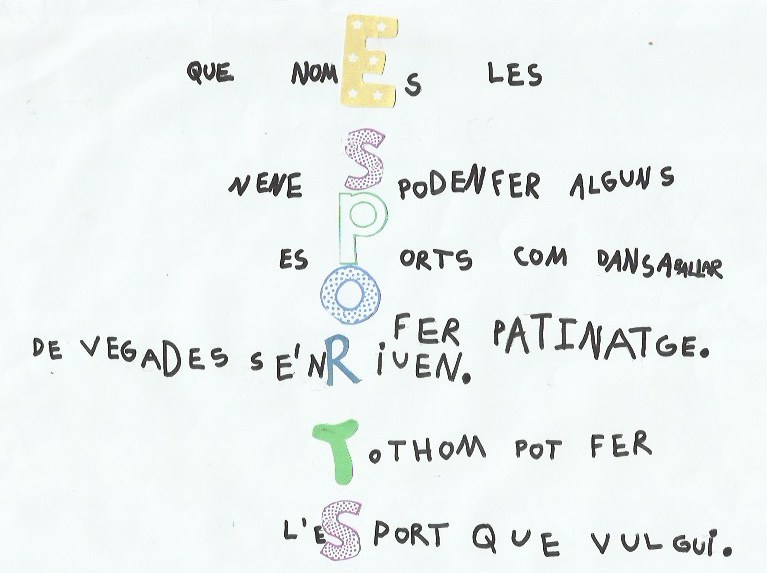 QUE NOMES LES
NENES PODEN FER ALGUNS
ESPORTS COM DANSA BALLAR
O FER PATINATGE.
DE VEGADES SE'N RIUEN.
TOTHOM POT FER
L'ESPORT QUE VULGUI.